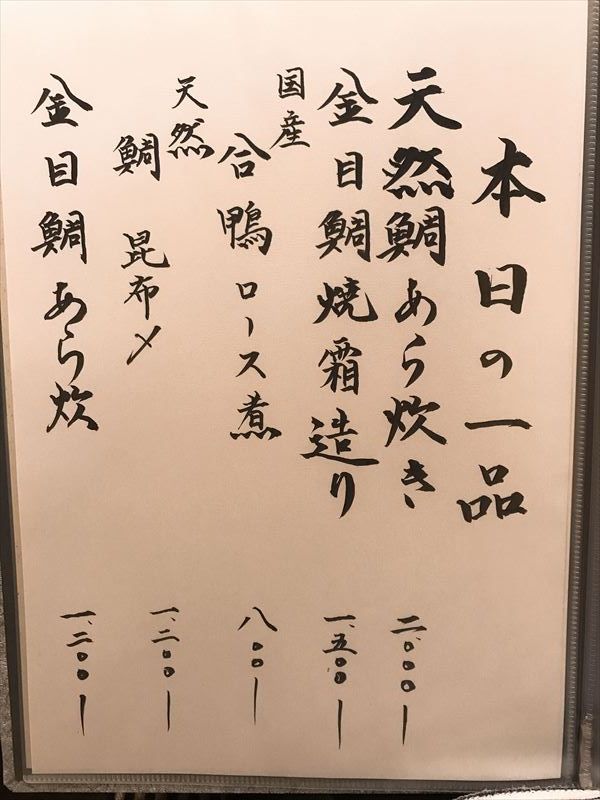 本日の一品
天然鯛あら炊き 二、〇〇〇ー
金目鯛焼霜造り 一、五〇〇ー
国産 合鴨ロース煮 八〇〇ー
天然 鯛 昆布〆 一、二〇〇ー
金目鯛あら炊 一、二〇〇ー